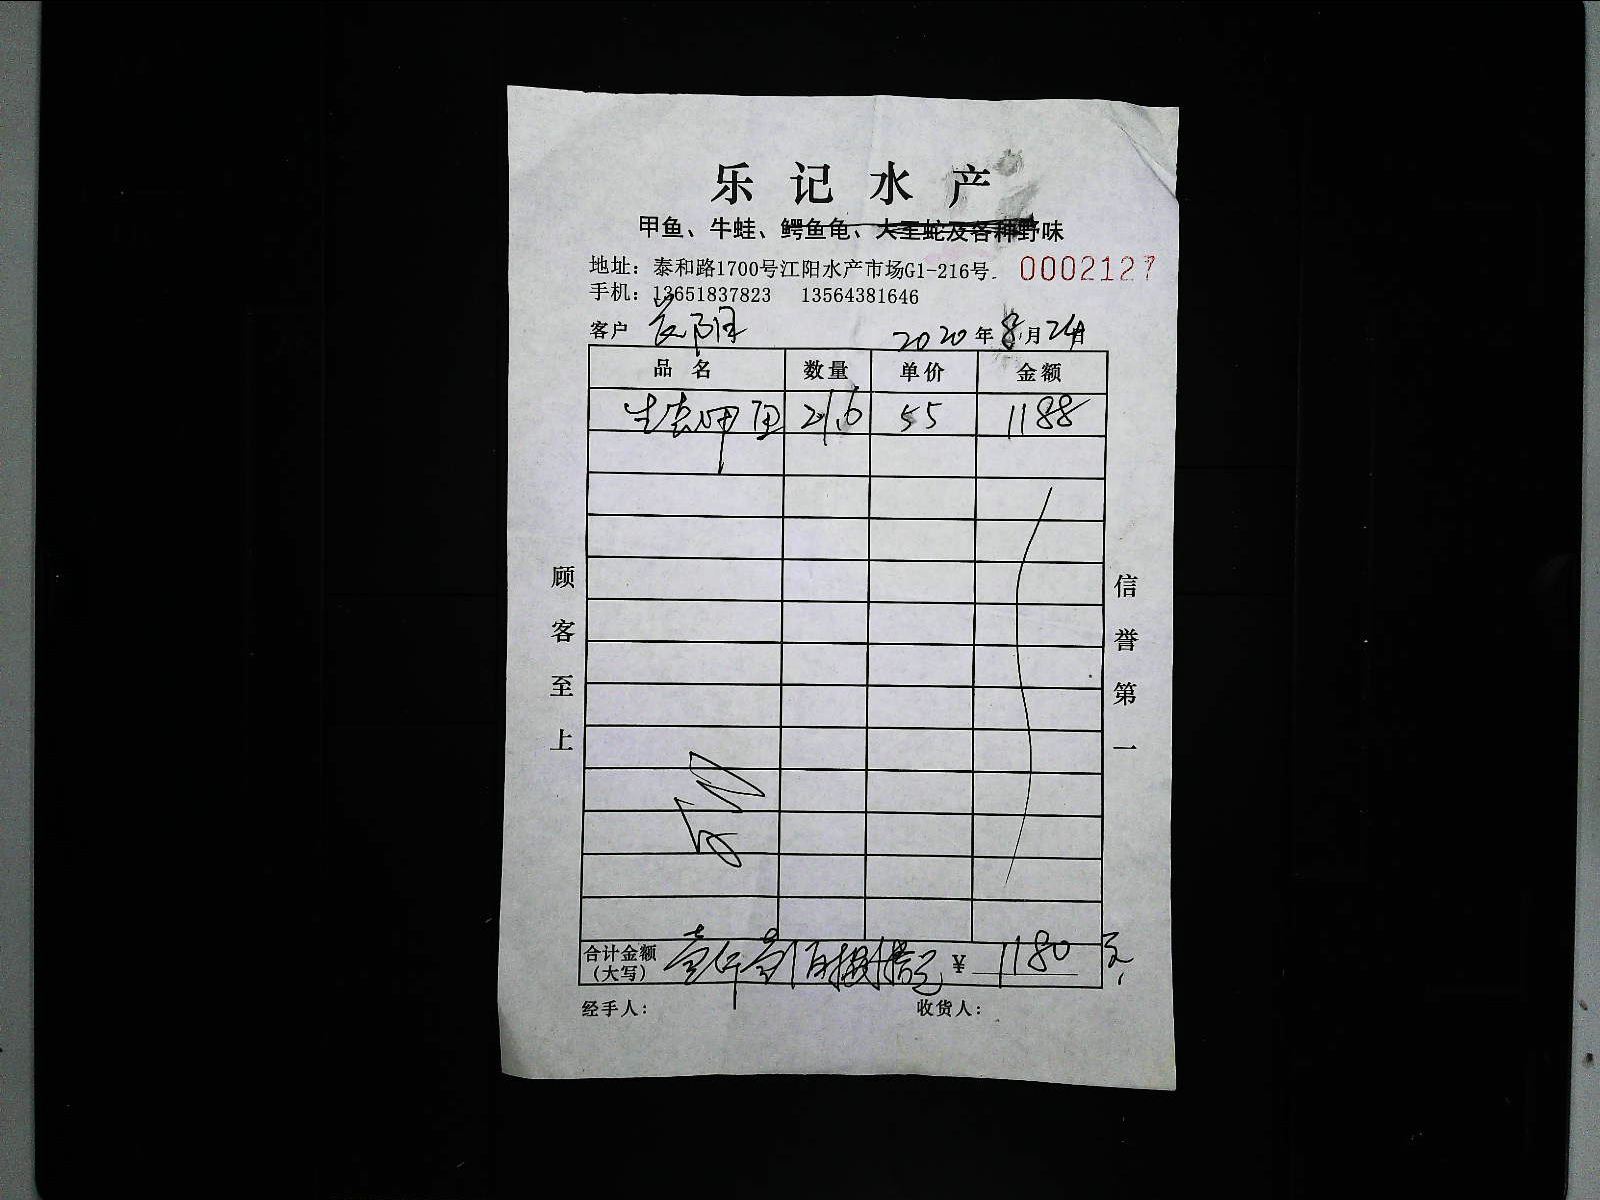 乐记水产
甲鱼、牛蛙、鳄鱼龟、大王蛇及各种野味
地址：泰和路1700号江阳水产市场G1-216号. 0002127
手机：13651837823 13564381646
客户 2020年8月24日
品名 数量 单价 金额
生态甲鱼 21.6 55 1188
顾客至上
信誉第一
合计金额(大写) 壹仟壹佰捌拾元 ¥ 1180 元
经手人： 收货人：